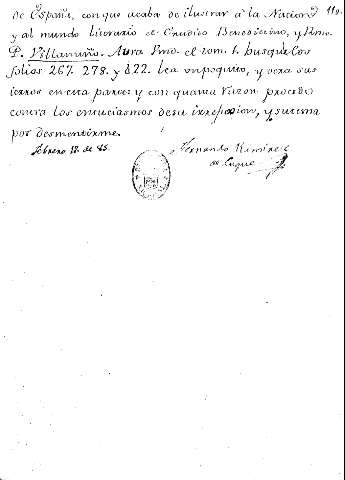 119.
de España, con que acaba de ilustrar à la Nacion
y al mundo literario el Erudito Benedictino, y Rmo.
P. Villanuño. Abra Pmo. el tom. 1. busque los
folios 267. 278. y 422. lea un poquito, y vera sus
ierros en esta parte; y con quanta razon procedo
contra los entuciasmos de su irreflexion, y su tema
por desmentirme.
Febrero 18. de 85.
Fernando Ramirez
de Luque